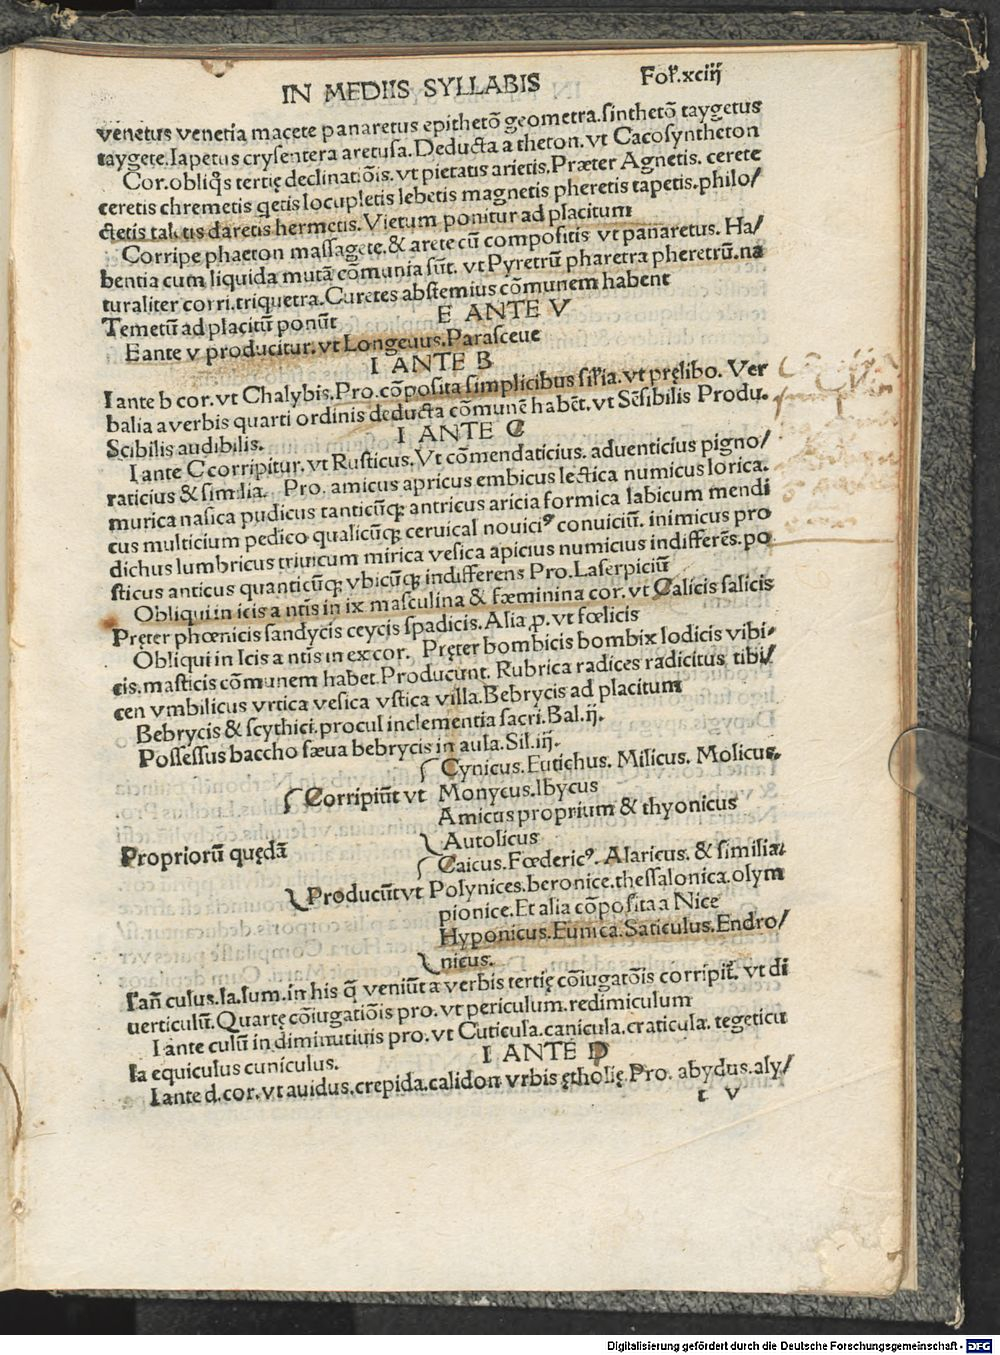 IN MEDIIS SYLLABIS Fol.xciij
venetus venetia macete panaretus epithetō geometra.sinthetō taygetus
taygete.Iapetus crysentera aretusa.Deducta a theton.vt Cacosyntheton
Cor.obliq̄s tertię declinatiōis.vt pietatis arietis.Præter Agnetis.cerete
ceretis chremetis q̨etis locupletis lebetis magnetis pheretis tapetis.philo/
ctetis talētis daretis hermetis.Vietum ponitur ad placitum
Corripe phaeton massagete.& arete cū compositis vt panaretus. Ha/
bentia cum liquida mutā cōmunia sūt.vt Pyretrū pharetra pheretrū.na
turaliter corri.triquetra.Curetes abstemius cōmunem habent
Temetū ad placitū ponūt E ANTE V
Eante v producitur.vt Longeuus.Parasceue
I ANTE B
I ante b cor.vt Chalybis.Pro.cōposita simplicibus sił̄ia.vt pręlibo. Ver
balia a verbis quarti ordinis deducta cōmunē habēt.vt Sēsibilis Produ.
Scibilis audibilis. I ANTE C
I ante C corripitur.vt Rusticus.Vt cōmendaticius.aduenticius pigno/
raticius & similia. Pro.amicus apricus embicus lectica numicus lorica.
murica nasica pudicus tanticūq; antricus aricia formica labicum mendi
cus multicium pedico qualicūq; ceruical nouiciꝰ conuiciū. inimicus pro
dichus lumbricus triuicum mirica vesica apicius numicius indifferēs.po
sticus anticus quanticūq; vbicūq; indifferens Pro.Laserpiciū
Obliqui in icis a ntīs in ix masculina & fœminina cor.vt Calicis salicis
Pręter phœnicis sandycis ceycis spadicis.Alia ꝓ.vt fœlicis
Obliqui in Icis a ntīs in ex cor. Pręter bombicis bombix lodicis vibi/
cis.masticis cōmunem habet.Producunt. Rubrica radices radicitus tibi/
cen vmbilicus vrtica vesica vstica villa.Bebrycis ad placitum
Bebrycis & scythici.procul inclementia sacri.Bal.ij.
Possessus baccho sæua bebrycis in aula.Sil.iij.
Cynicus.Eutichus. Milicus. Molicus.
Corripiūt vt Monycus.Ibycus
Amicus proprium & thyonicus
Autolicus
Propriorū quędā
Caicus.Fœdericꝰ. Alaricus. & similia.
Producūt vt Polynices.beronice.thessalonica.olym
pionice.Et alia cōposita a Nice
Hyponicus.Eunica.Saticulus.Endro/
nicus.
I añ culus.la.lum.in his q̄ veniūt a verbis tertię cōiugatōis corripit̄. vt di
uerticulū.Quartę cōiugatiōis pro.vt periculum.redimiculum
I ante culū in diminutiuis pro.vt Cuticula.canicula.craticula. tegeticu
la equiculus cuniculus. I ANTE D
I ante d.cor.vt auidus.crepida.calidon vrbis ętholię.Pro. abydus.aly/
t v
Digitalisierung gefördert durch die Deutsche Forschungsgemeinschaft - DFG